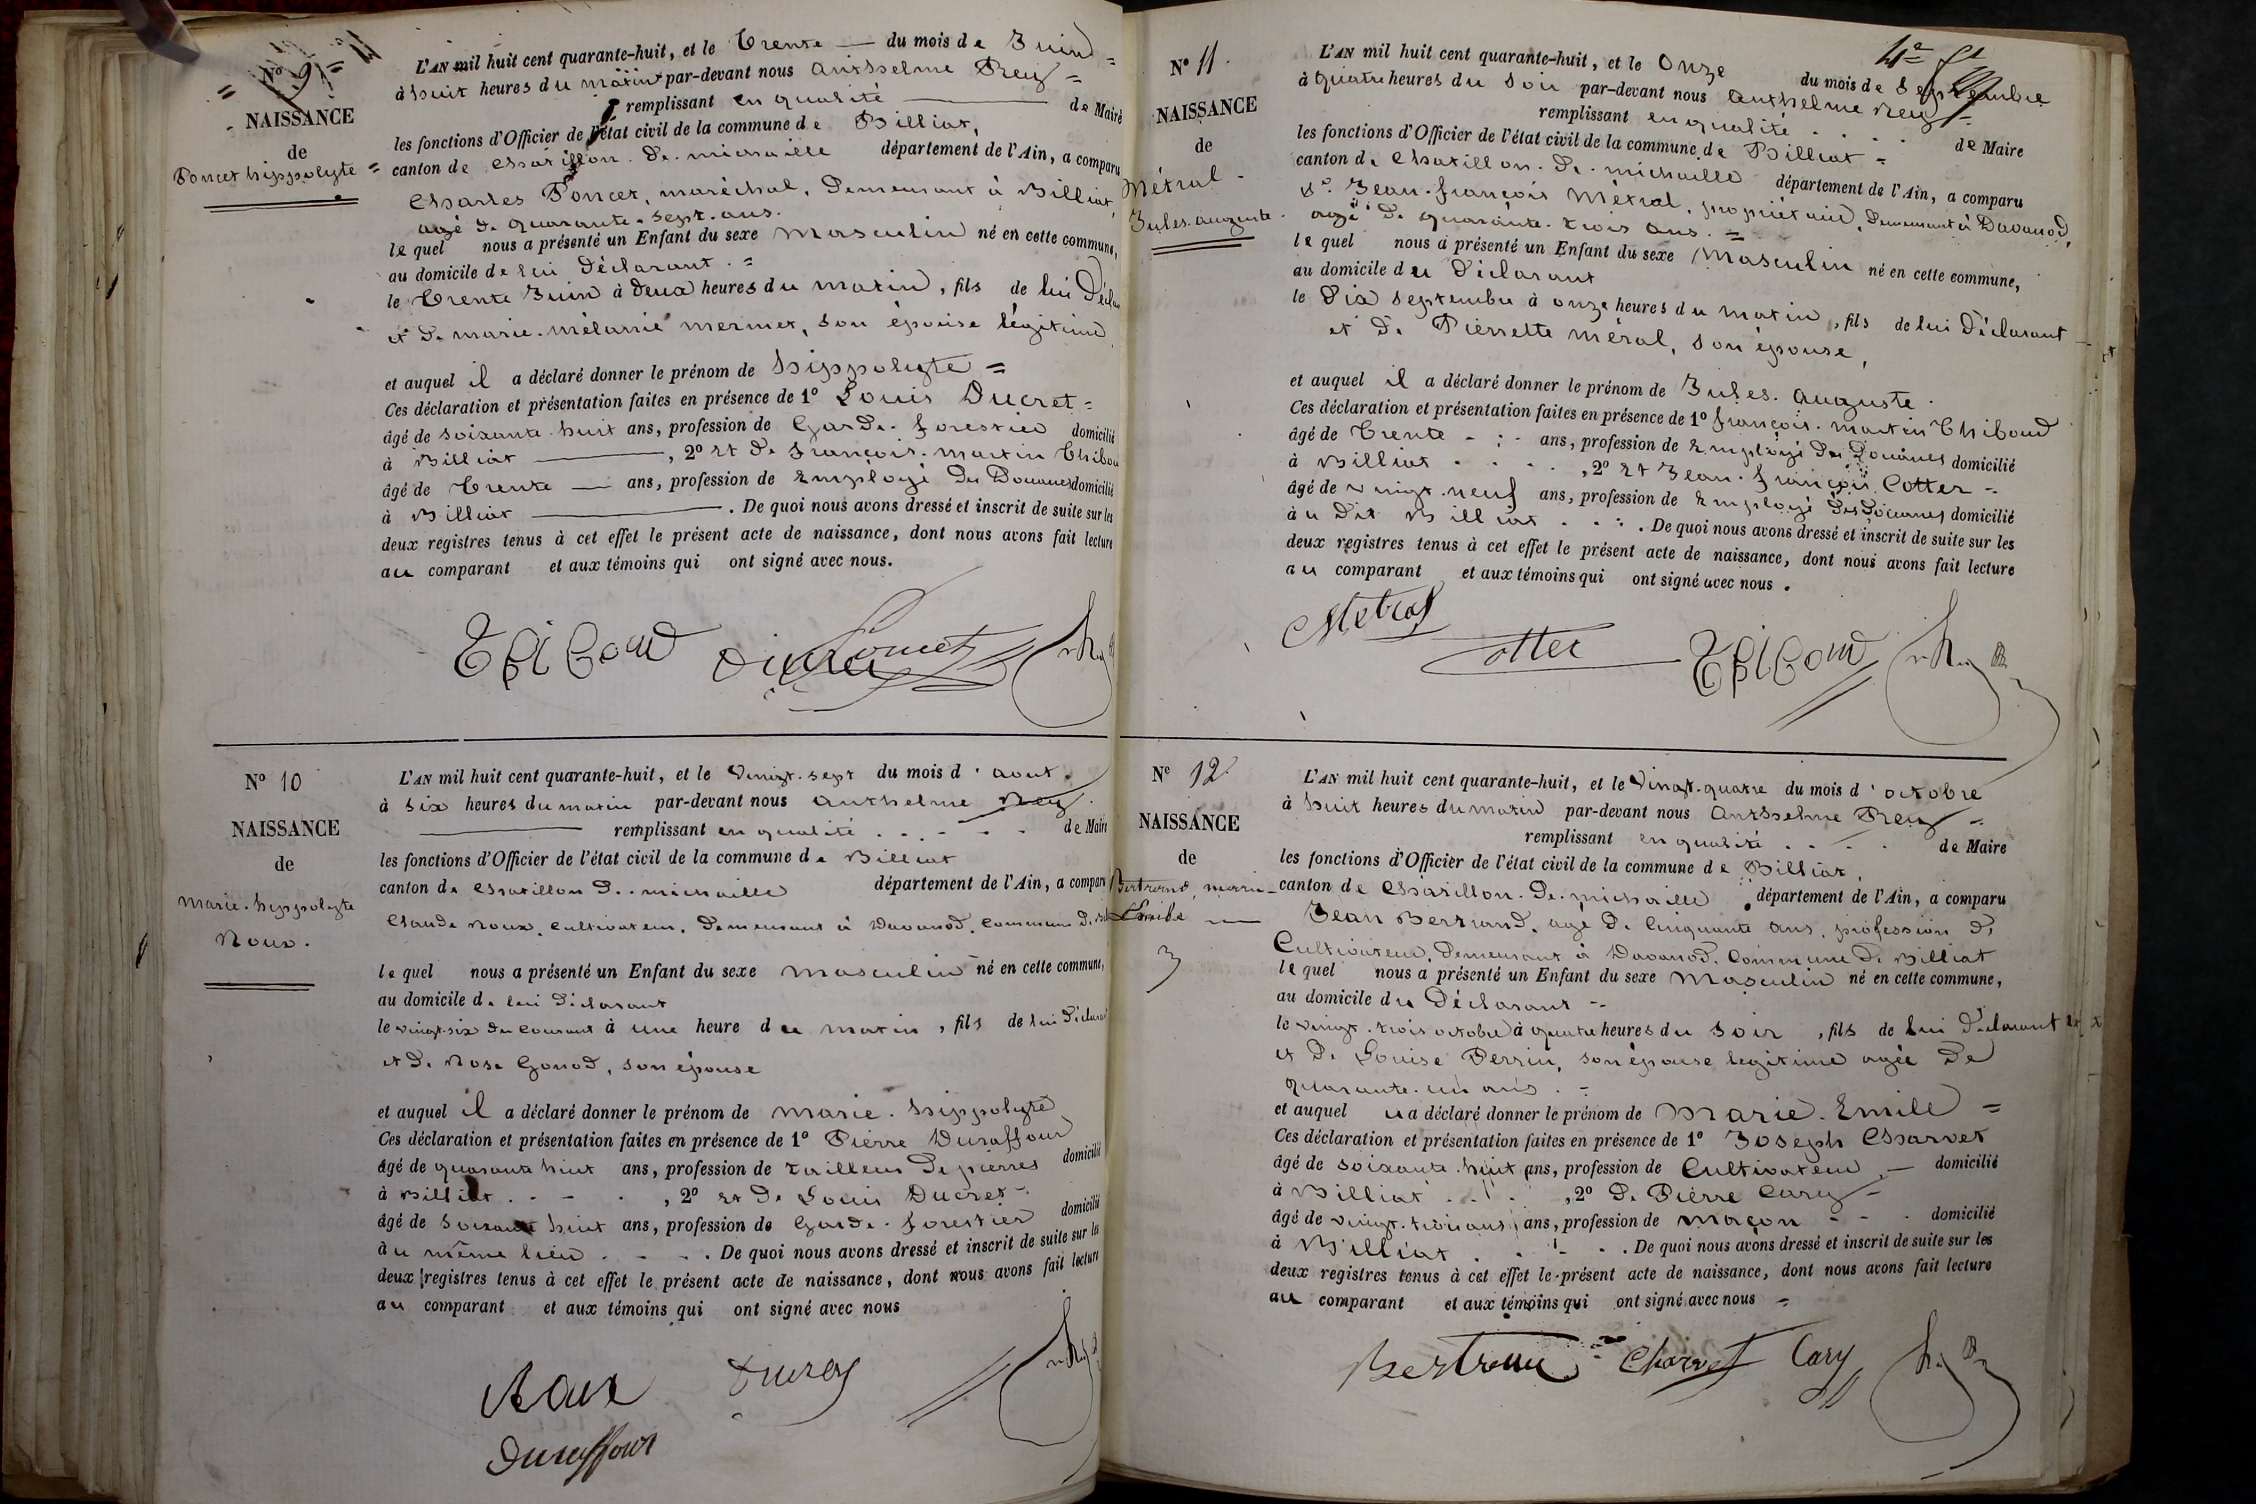 N° 9
NAISSANCE
de
Poncet hippolyte =
L'AN mil huit cent quarante-huit, et le Trente — du mois de Juin =
à huit heures du matin par-devant nous Anthelme Rey =
remplissant en qualité — de Maire
les fonctions d'Officier de l'état civil de la commune de Billiat,
canton de Chatillon. de. michaille département de l'Ain, a comparu
Charles Poncet, maréchal, demeurant à Billiat,
agé de quarante-sept. ans.
lequel nous a présenté un Enfant du sexe masculin né en cette commune,
au domicile de lui déclarant. =
le Trente Juin à deux heures du matin, fils de lui Décla
et de marie-mélanie mermet, son épouse légitime
et auquel il a déclaré donner le prénom de hippolyte =
Ces déclaration et présentation faites en présence de 1° Louis Ducret =
âgé de soixante-huit ans, profession de Garde-forestier domicilié
à Billiat —, 2° et de françois-martin Thibou
âgé de Trente — ans, profession de Employé des Douanes domicilié
à Billiat —. De quoi nous avons dressé et inscrit de suite sur les
deux registres tenus à cet effet le présent acte de naissance, dont nous avons fait lecture
au comparant et aux témoins qui ont signé avec nous.
Thiboud Ducret Poncet Rey
N° 10
NAISSANCE
de
Marie-hippolyte
Roux.
L'AN mil huit cent quarante-huit, et le vingt-sept du mois d'aout.
à six heures du matin par-devant nous anthelme Rey.
— remplissant en qualité . . - - - de Maire
les fonctions d'Officier de l'état civil de la commune de Billiat
canton de Chatillon de. michaille département de l'Ain, a comparu
Claude Roux, cultivateur, demeurant à Davanod, commune de Bil
lequel nous a présenté un Enfant du sexe masculin né en cette commune,
au domicile de lui déclarant
le vingt-six du courant à une heure du matin, fils de lui déclarant
et de Rose Gonod, son épouse
et auquel il a déclaré donner le prénom de marie-hippolyte
Ces déclaration et présentation faites en présence de 1° Pierre Duraffour
âgé de quarante huit ans, profession de tailleur de pierres domicilié
à Billiat . - - ., 2° et de Louis Ducret -
âgé de soixante huit ans, profession de Garde-forestier domicilié
au même lieu . - - . . De quoi nous avons dressé et inscrit de suite sur les
deux registres tenus à cet effet le présent acte de naissance, dont nous avons fait lecture
au comparant et aux témoins qui ont signé avec nous
Roux Ducret Rey
Duraffour
N° 11.
NAISSANCE
de
Métral -
Jules. auguste.
L'AN mil huit cent quarante-huit, et le Onze du mois de Septembre
à quatre heures du soir par-devant nous anthelme Rey =
remplissant en qualité . . . de Maire
les fonctions d'Officier de l'état civil de la commune de Billiat =
canton de Chatillon. de. michaille département de l'Ain, a comparu
Sr. Jean-françois Métral, propriétaire, demeurant à Davanod,
agé de quarante-trois ans. =
lequel nous a présenté un Enfant du sexe masculin né en cette commune,
au domicile du déclarant
le dix septembre à onze heures du matin, fils de lui déclarant
et de Pierrette méral, son épouse,
et auquel il a déclaré donner le prénom de Jules. auguste.
Ces déclaration et présentation faites en présence de 1° françois-martin Thiboud
âgé de Trente - : - ans, profession de Employé des Douanes domicilié
à Billiat . . . ., 2° et Jean-françois Cotter =
âgé de vingt-neuf ans, profession de Employé des Douanes domicilié
au dit Billiat . . : . . De quoi nous avons dressé et inscrit de suite sur les
deux registres tenus à cet effet le présent acte de naissance, dont nous avons fait lecture
au comparant et aux témoins qui ont signé avec nous.
Metral Cotter Thiboud Rey
N° 12.
NAISSANCE
de
Bertrand, marie-
Emile —
L'AN mil huit cent quarante-huit, et le vingt-quatre du mois d'octobre
à huit heures du matin par-devant nous Anthelme Rey =
remplissant en qualité . . - . de Maire
les fonctions d'Officier de l'état civil de la commune de Billiat,
canton de Chatillon. de. michaille département de l'Ain, a comparu
Jean Bertrand, agé de Cinquante ans, profession de
Cultivateur, demeurant à Davanod, Commune de Billiat
lequel nous a présenté un Enfant du sexe masculin né en cette commune,
au domicile du déclarant =
le vingt-trois octobre à quatre heures du soir, fils de lui déclarant
et de Louise Perrin, son épouse legitime agée de
quarante-un ans. =
et auquel il a déclaré donner le prénom de Marie-Emile =
Ces déclaration et présentation faites en présence de 1° Joseph Charvet
âgé de soixante-huit ans, profession de Cultivateur — domicilié
à Billiat . . . ., 2° de Pierre Cary =
âgé de vingt-trois ans ans, profession de maçon - - . domicilié
à Billiat . . - - . . De quoi nous avons dressé et inscrit de suite sur les
deux registres tenus à cet effet le présent acte de naissance, dont nous avons fait lecture
au comparant et aux témoins qui ont signé avec nous =
Bertrand Charvet Cary Rey